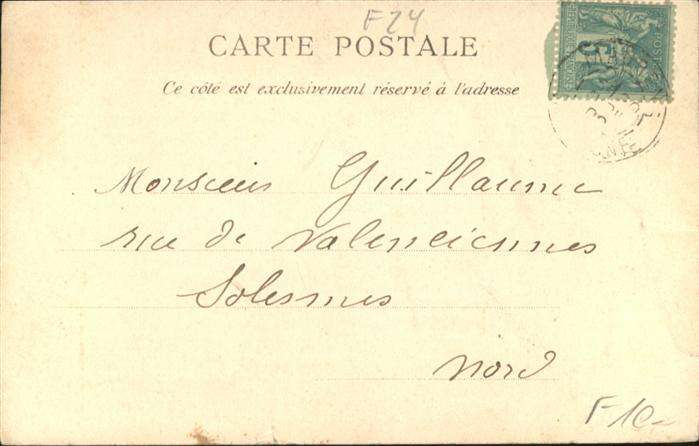 F24
CARTE POSTALE
Ce côté est exclusivement réservé à l'adresse
Monsieur Guillaume
rue de Valenciennes
Solesmes
Nord
F 10-